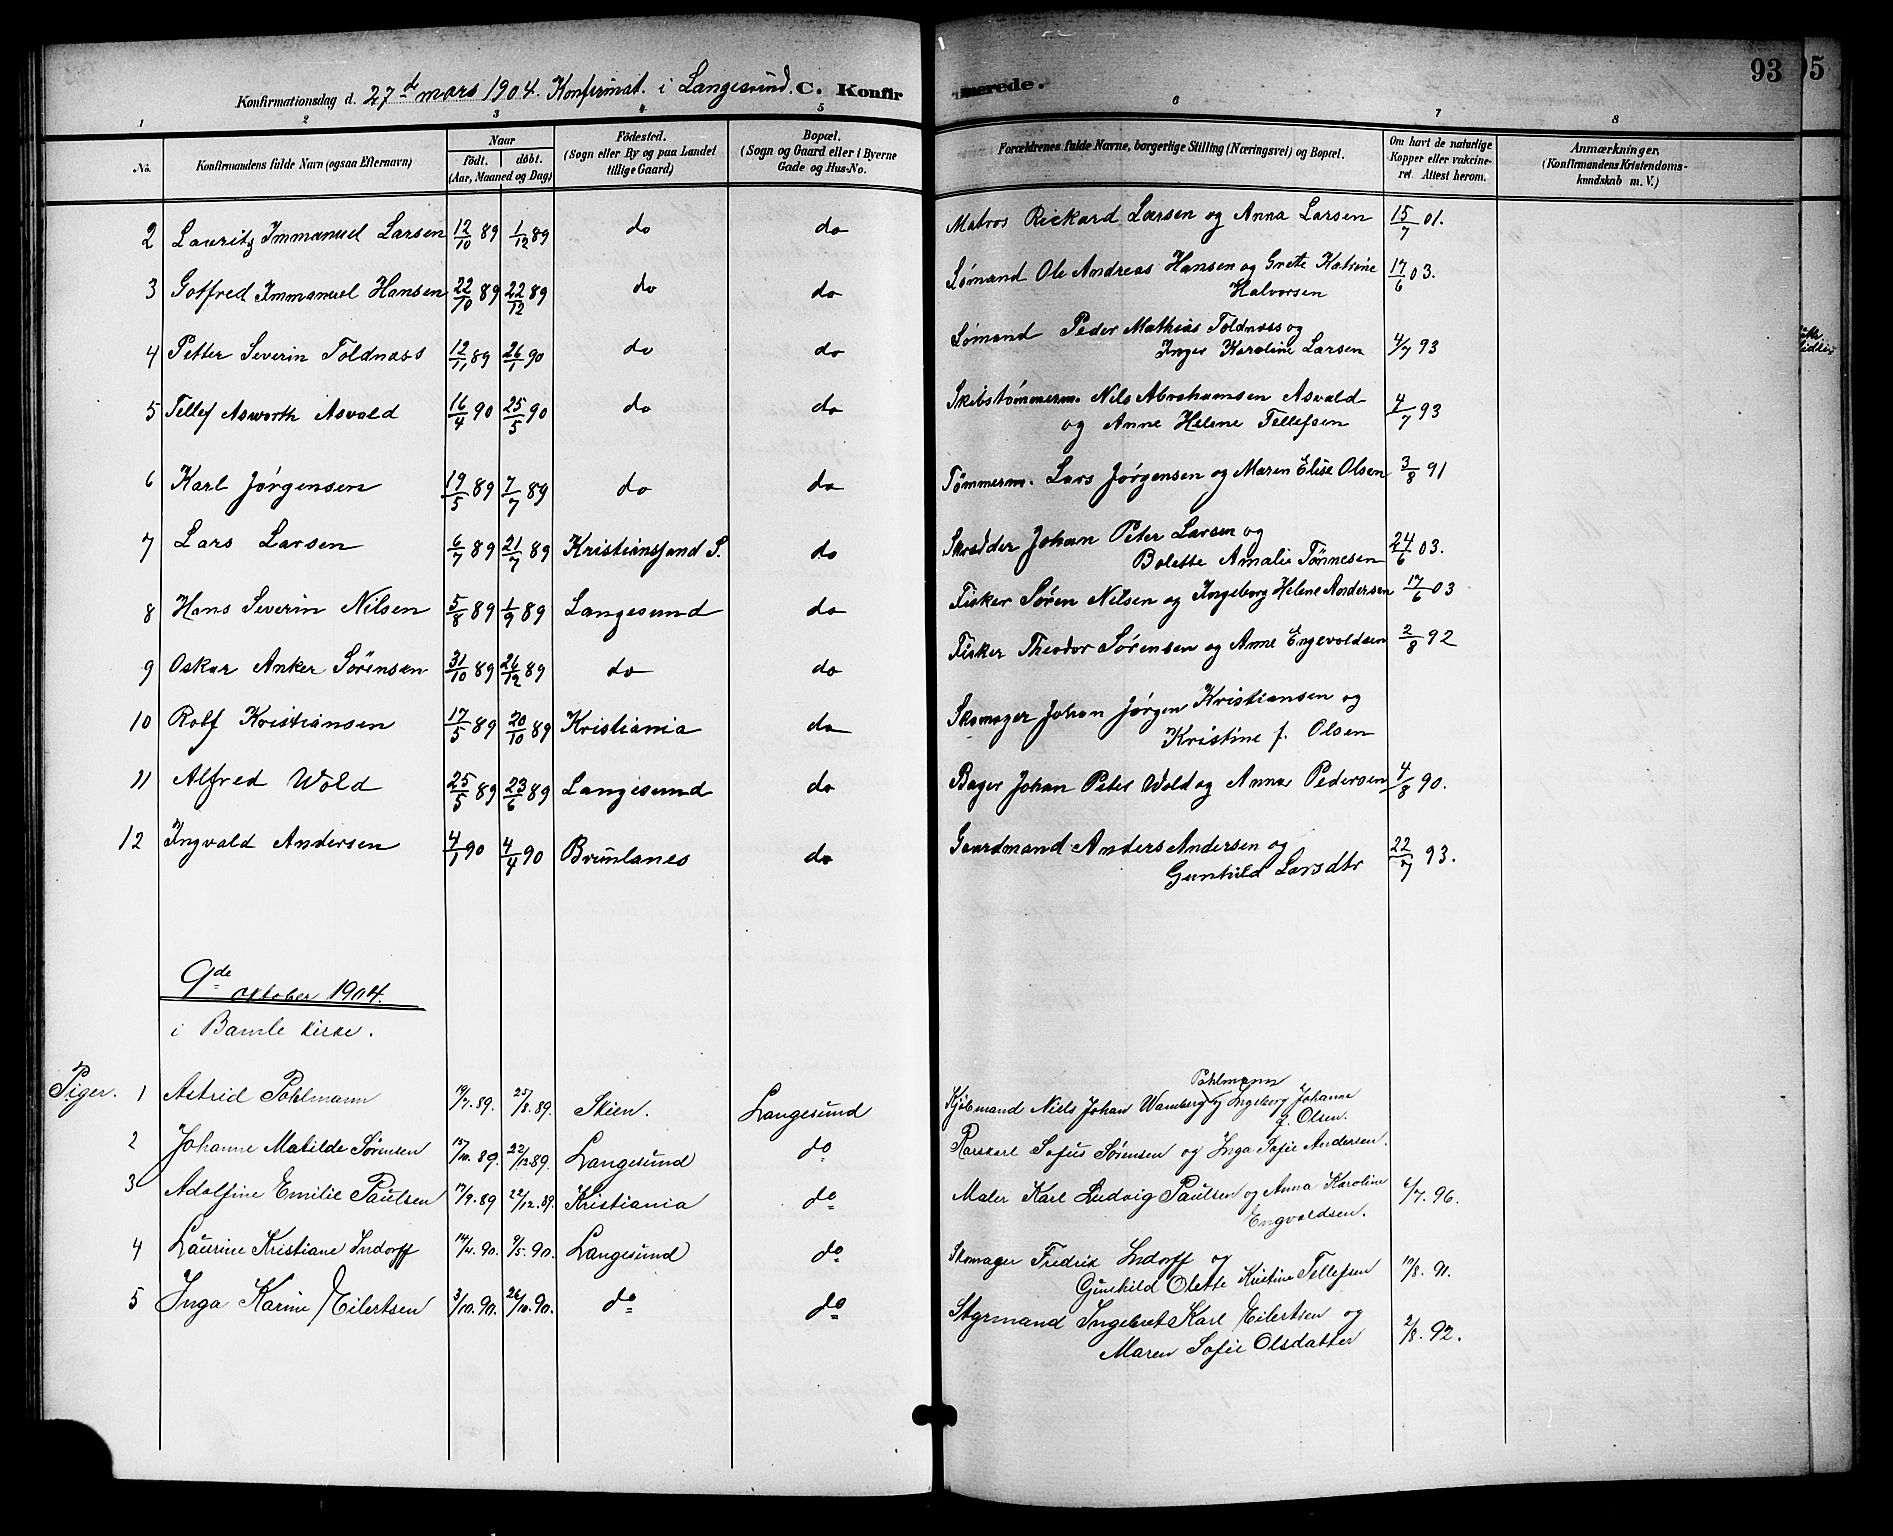 Konfirmationsdag d. 27de mars 1904. Konfirmat. i Langesund. C. Konfirmerede. 93
1 2 3 4 5 6 7 8
No. Konfirmandens fulde Navn (ogsaa Efternavn) Naar født. døbt. (Aar, Maaned og Dag) Fødested. (Sogn eller By og paa Landet tillige Gaard) Bopæl. (Sogn og Gaard eller i Byerne Gade og Hus-No. Forældrenes fulde Navne, borgerlige Stilling (Næringsvei) og Bopæl. Om havt de naturlige Kopper eller vakcineret. Attest herom. Anmærkninger, (Konfirmandens Kristendomskundskab m. V.)
2 Lauritz Immanuel Larsen 12/10 89 1/12 89 do do Matros Rickard Larsen og Anna Larsen 15/7 01.
3 Gotfred Immanuel Hansen 22/10 89 22/12 89 do do Sømand Ole Andreas Hansen og Grette Katrine 17/6 03.
Halvorsen
4 Petter Severin Toldnæss 12/11 89 26/1 90 do do Sømand Peder Mathias Toldnæss og
Inger Karoline Larsen 4/7 93
5 Tellef Asworth Asvald 16/4 90 25/5 90 do do Skibstømmerm. Nils Abrahamsen Asvald 4/7 93
og Anne Helene Tellefsen
6 Karl Jørgensen 19/5 89 7/7 89 do do Tømmerm. Lars Jørgensen og Maren Elise Olsen 3/8 91
7 Lars Larsen 6/7 89 21/7 89 Kristianssand S. do Skrædder Johan Peter Larsen og
Bolette Amalie Tønnesen 24/6 03.
8 Hans Severin Nilsen 5/8 89 1/9 89 Langesund do Fisker Søren Nilsen og Ingeborg Helene Andersen 17/6 03
9 Oskar Anker Sørensen 31/10 89 26/12 89 do do Fisker Theodor Sørensen og Anne Engevoldsen 2/8 92
10 Rolf Kristiansen 17/5 89 20/10 89 Kristiania do Skomager Johan Jørgen Kristiansen og
Kristine f. Olsen
11 Alfred Wold 25/5 89 23/6 89 Langesund do Bager Johan Peter Wold og Anna Pedersen 4/8 90.
12 Ingvald Andersen 4/1 90 4/4 90 Brunlanes do Gaardmand Anders Andersen og
Gunhild Larsdtr 22/7 93.
9de oktober 1904.
i Bamle kirke.
Piger. 1 Astrid Pohlmann 19/7. 89. 25/8. 89. Skien. Langesund Kjøbmand Niels Johan Wamberg Pohlmann og Ingeborg Johanne
f. Olsen.
2 Johanne Matilde Sørensen 15/10. 89. 22/12 89. Langesund do Karskarl Sofus Sørensen og Inga Sofie Andersen.
3 Adolfine Emilie Paulsen 17/9. 89 22/12. 89. Kristiania do Maler Karl Ludvig Paulsen og Anna Karoline 6/7. 96.
Engvoldsen.
4 Laurine Kristiane Indorff 14/4. 90. 9/5. 90. Langesund do Skomager Fredrik Indorff og
Gunhild Olette Kristine Tellefsen 11/8. 91.
5 Inga Karine Eilertsen 3/10. 90. 26/10. 90. do do Styrmand Ingebret Karl Eilertsen og
Maren Sofie Olsdatter 2/8. 92.